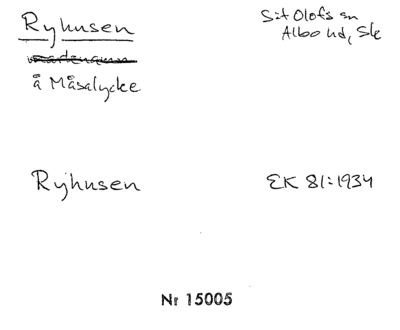 Ryhusen
S:t Olofs sn
Albo hd, Sk
å Måsalycke
Ryhusen
EK 81:1934
Nr 15005